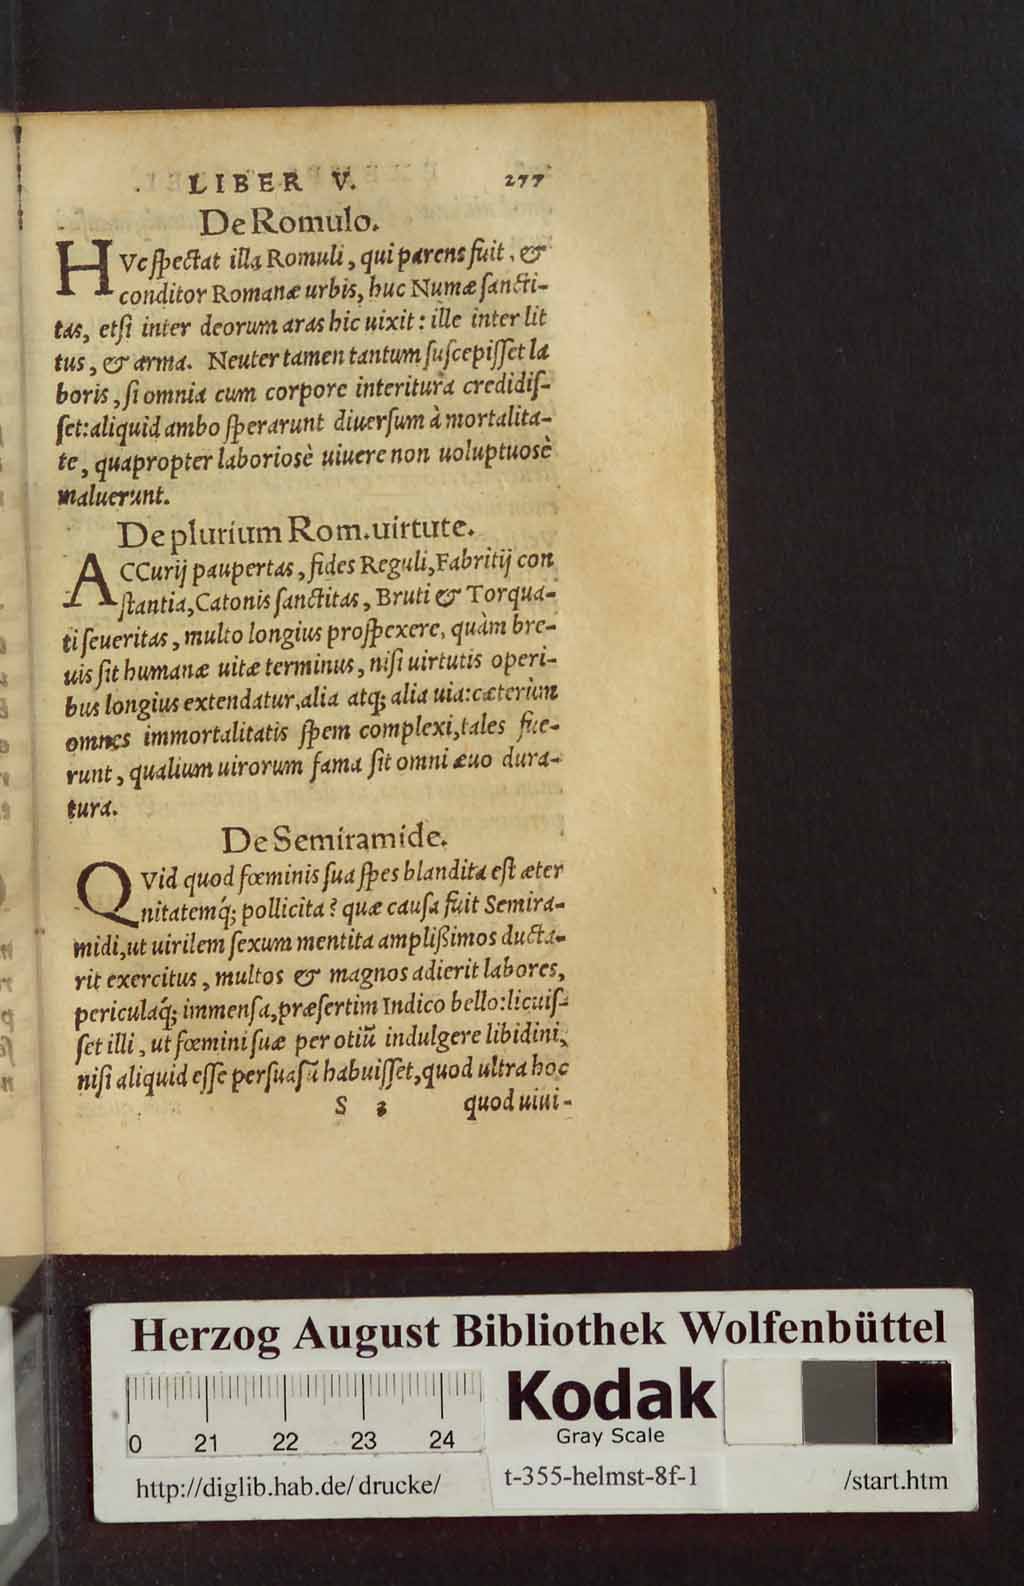 LIBER V. 277
De Romulo.
HVc ſpectat illa Romuli, qui parens fuit, &
conditor Romanæ urbis, huc Numæ ſancti-
tas, etſi inter deorum aras hic uixit: ille inter lit
tus, & arma. Neuter tamen tantum ſuſcepiſſet la
boris, ſi omnia cum corpore interitura credidiſ-
ſet: aliquid ambo ſperarunt diuerſum à mortalita-
te, quapropter laboriosè uiuere non uoluptuosè
maluerunt.
De plurium Rom. uirtute.
ACCurij paupertas, fides Reguli, Fabritij con
ſtantia, Catonis ſanctitas, Bruti & Torqua-
ti ſeueritas, multo longius proſpexere, quàm bre-
uis ſit humanæ uitæ terminus, niſi uirtutis operi-
bus longius extendatur, alia atq; alia uia: cæterùm
omnes immortalitatis ſpem complexi, tales fue-
runt, qualium uirorum fama ſit omni æuo dura-
tura.
De Semiramide.
QVid quod fœminis ſua ſpes blandita eſt æter
nitatemq́; pollicita? quæ cauſa fuit Semira-
midi, ut uirilem ſexum mentita amplißimos ducta-
rit exercitus, multos & magnos adierit labores,
periculaq́; immenſa, præſertim Indico bello: licuiſ-
ſet illi, ut fœmini ſuæ per otiũ indulgere libidini,
niſi aliquid eſſe perſuaſũ habuiſſet, quod ultra hoc
S 3 quod uiui-
Herzog August Bibliothek Wolfenbüttel
Kodak
Gray Scale
0 21 22 23 24
http://diglib.hab.de/drucke/ t-355-helmst-8f-1 /start.htm